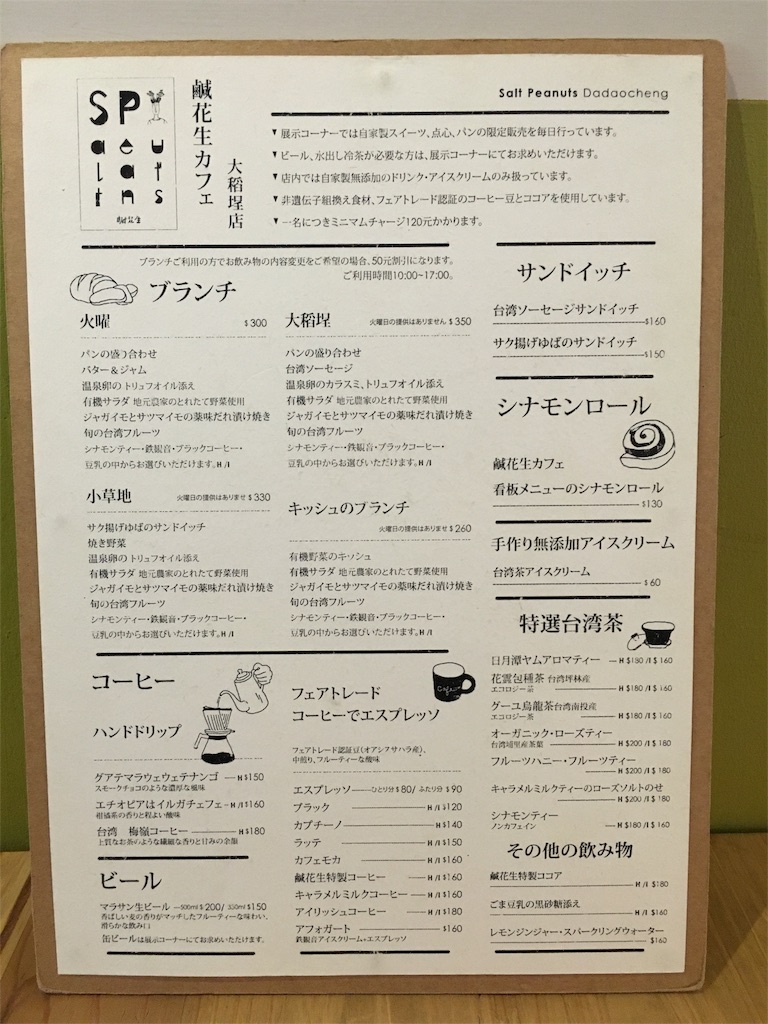 Salt Peanuts
鹹花生
鹹花生カフェ
大稲埕店
Salt Peanuts Dadaocheng
▼展示コーナーでは自家製スイーツ、点心、パンの限定販売を毎日行っています。
▼ビール、水出し冷茶が必要な方は、展示コーナーにてお求めいただけます。
▼店内では自家製無添加のドリンク・アイスクリームのみ扱っています。
▼非遺伝子組換え食材、フェアトレード認証のコーヒー豆とココアを使用しています。
▼一名につきミニマムチャージ120元かかります。
ブランチご利用の方でお飲み物の内容変更をご希望の場合、50元割引になります。
ご利用時間10:00~17:00。
ブランチ
火曜 $300
パンの盛り合わせ
バター＆ジャム
温泉卵の トリュフオイル添え
有機サラダ 地元農家のとれたて野菜使用
ジャガイモとサツマイモの薬味だれ漬け焼き
旬の台湾フルーツ
シナモンティー・鉄観音・ブラックコーヒー・
豆乳の中からお選びいただけます。H /I
大稲埕 火曜日の提供はありません $350
パンの盛り合わせ
台湾ソーセージ
温泉卵のカラスミ、トリュフオイル添え
有機サラダ 地元農家のとれたて野菜使用
ジャガイモとサツマイモの薬味だれ漬け焼き
旬の台湾フルーツ
シナモンティー・鉄観音・ブラックコーヒー・
豆乳の中からお選びいただけます。H /I
小草地 火曜日の提供はありませ $330
サク揚げゆばのサンドイッチ
焼き野菜
温泉卵の トリュフオイル添え
有機サラダ 地元農家のとれたて野菜使用
ジャガイモとサツマイモの薬味だれ漬け焼き
旬の台湾フルーツ
シナモンティー・鉄観音・ブラックコーヒー・
豆乳の中からお選びいただけます。H /I
キッシュのブランチ
火曜日の提供はありませ $260
有機野菜のキッシュ
有機サラダ 地元農家のとれたて野菜使用
ジャガイモとサツマイモの薬味だれ漬け焼き
旬の台湾フルーツ
シナモンティー・鉄観音・ブラックコーヒー・
豆乳の中からお選びいただけます。H /I
コーヒー
ハンドドリップ
グアテマラウェウェテナンゴ H $150
スモークチョコのような濃厚な風味
エチオピアはイルガチェフェ H /I $160
柑橘系の香りと程よい酸味
台湾 梅嶺コーヒー H $180
上質なお茶のような繊細な香りと甘みの余韻
ビール
マラサン生ビール 500ml $200/ 350ml $150
香ばしい麦の香りがマッチしたフルーティーな味わい、
滑らかな飲み口
缶ビールは展示コーナーにてお求めいただけます。
フェアトレード
コーヒーでエスプレッソ
フェアトレード認証豆（オアシスサハラ産）、
中煎り、フルーティーな酸味
エスプレッソ ひとり分 $80/ ふたり分 $90
ブラック H /I $120
カプチーノ H $140
ラッテ H /I $150
カフェモカ H /I $160
鹹花生特製コーヒー H /I $160
キャラメルミルクコーヒー H /I $160
アイリッシュコーヒー H /I $180
アフォガート $160
鉄観音アイスクリーム+エスプレッソ
サンドイッチ
台湾ソーセージサンドイッチ
$160
サク揚げゆばのサンドイッチ
$150
シナモンロール
鹹花生カフェ
看板メニューのシナモンロール
$130
手作り無添加アイスクリーム
台湾茶アイスクリーム
$ 60
特選台湾茶
日月潭ヤムアロマティー H $180 /I $ 160
花雲包種茶 台湾坪林産
エコロジー茶 H $180 /I $ 160
グーユ烏龍茶 台湾南投産
エコロジー茶 H $180 /I $ 160
オーガニック・ローズティー
台湾埔里産茶葉 H $200 /I $ 180
フルーツハニー・フルーツティー
H $200 /I $ 180
キャラメルミルクティーのローズソルトのせ
H $200 /I $ 180
シナモンティー
ノンカフェイン H $180 /I $ 160
その他の飲み物
鹹花生特製ココア
H /I $180
ごま豆乳の黒砂糖添え
H /I $160
レモンジンジャー・スパークリングウォーター
$160